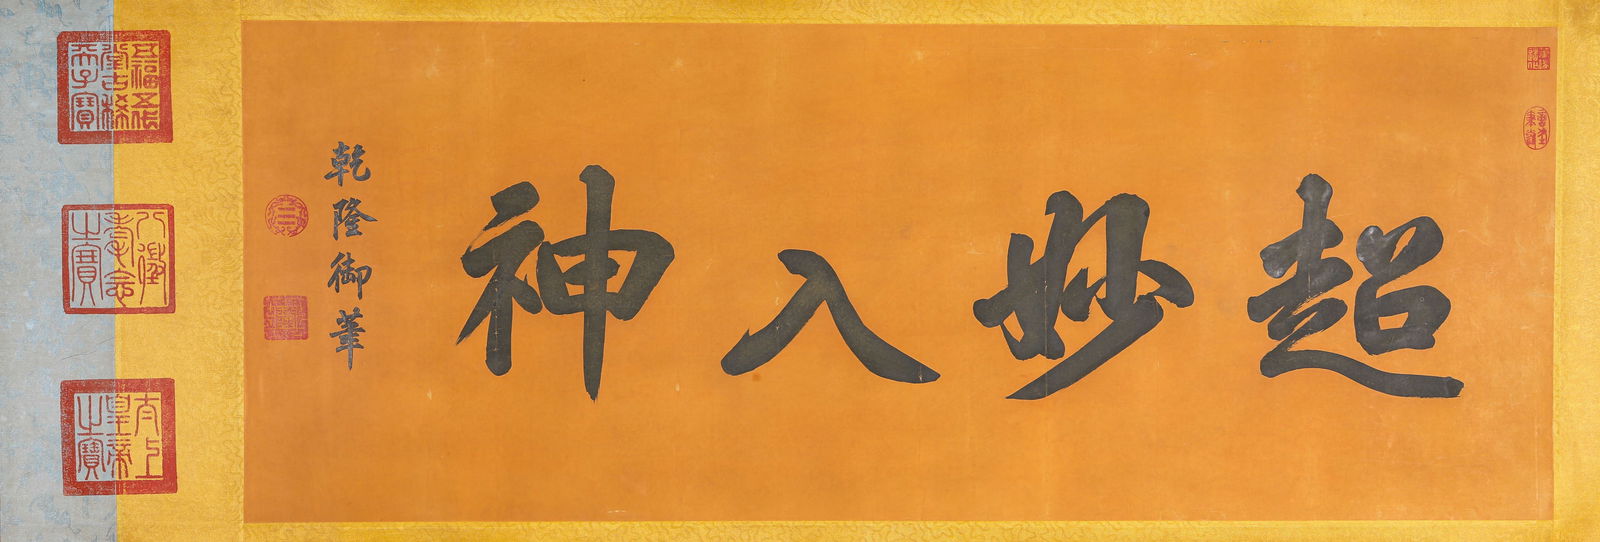 超妙入神
乾隆御筆
五福五代堂古稀天子寶
八徵耄念之寶
太上皇帝之寶